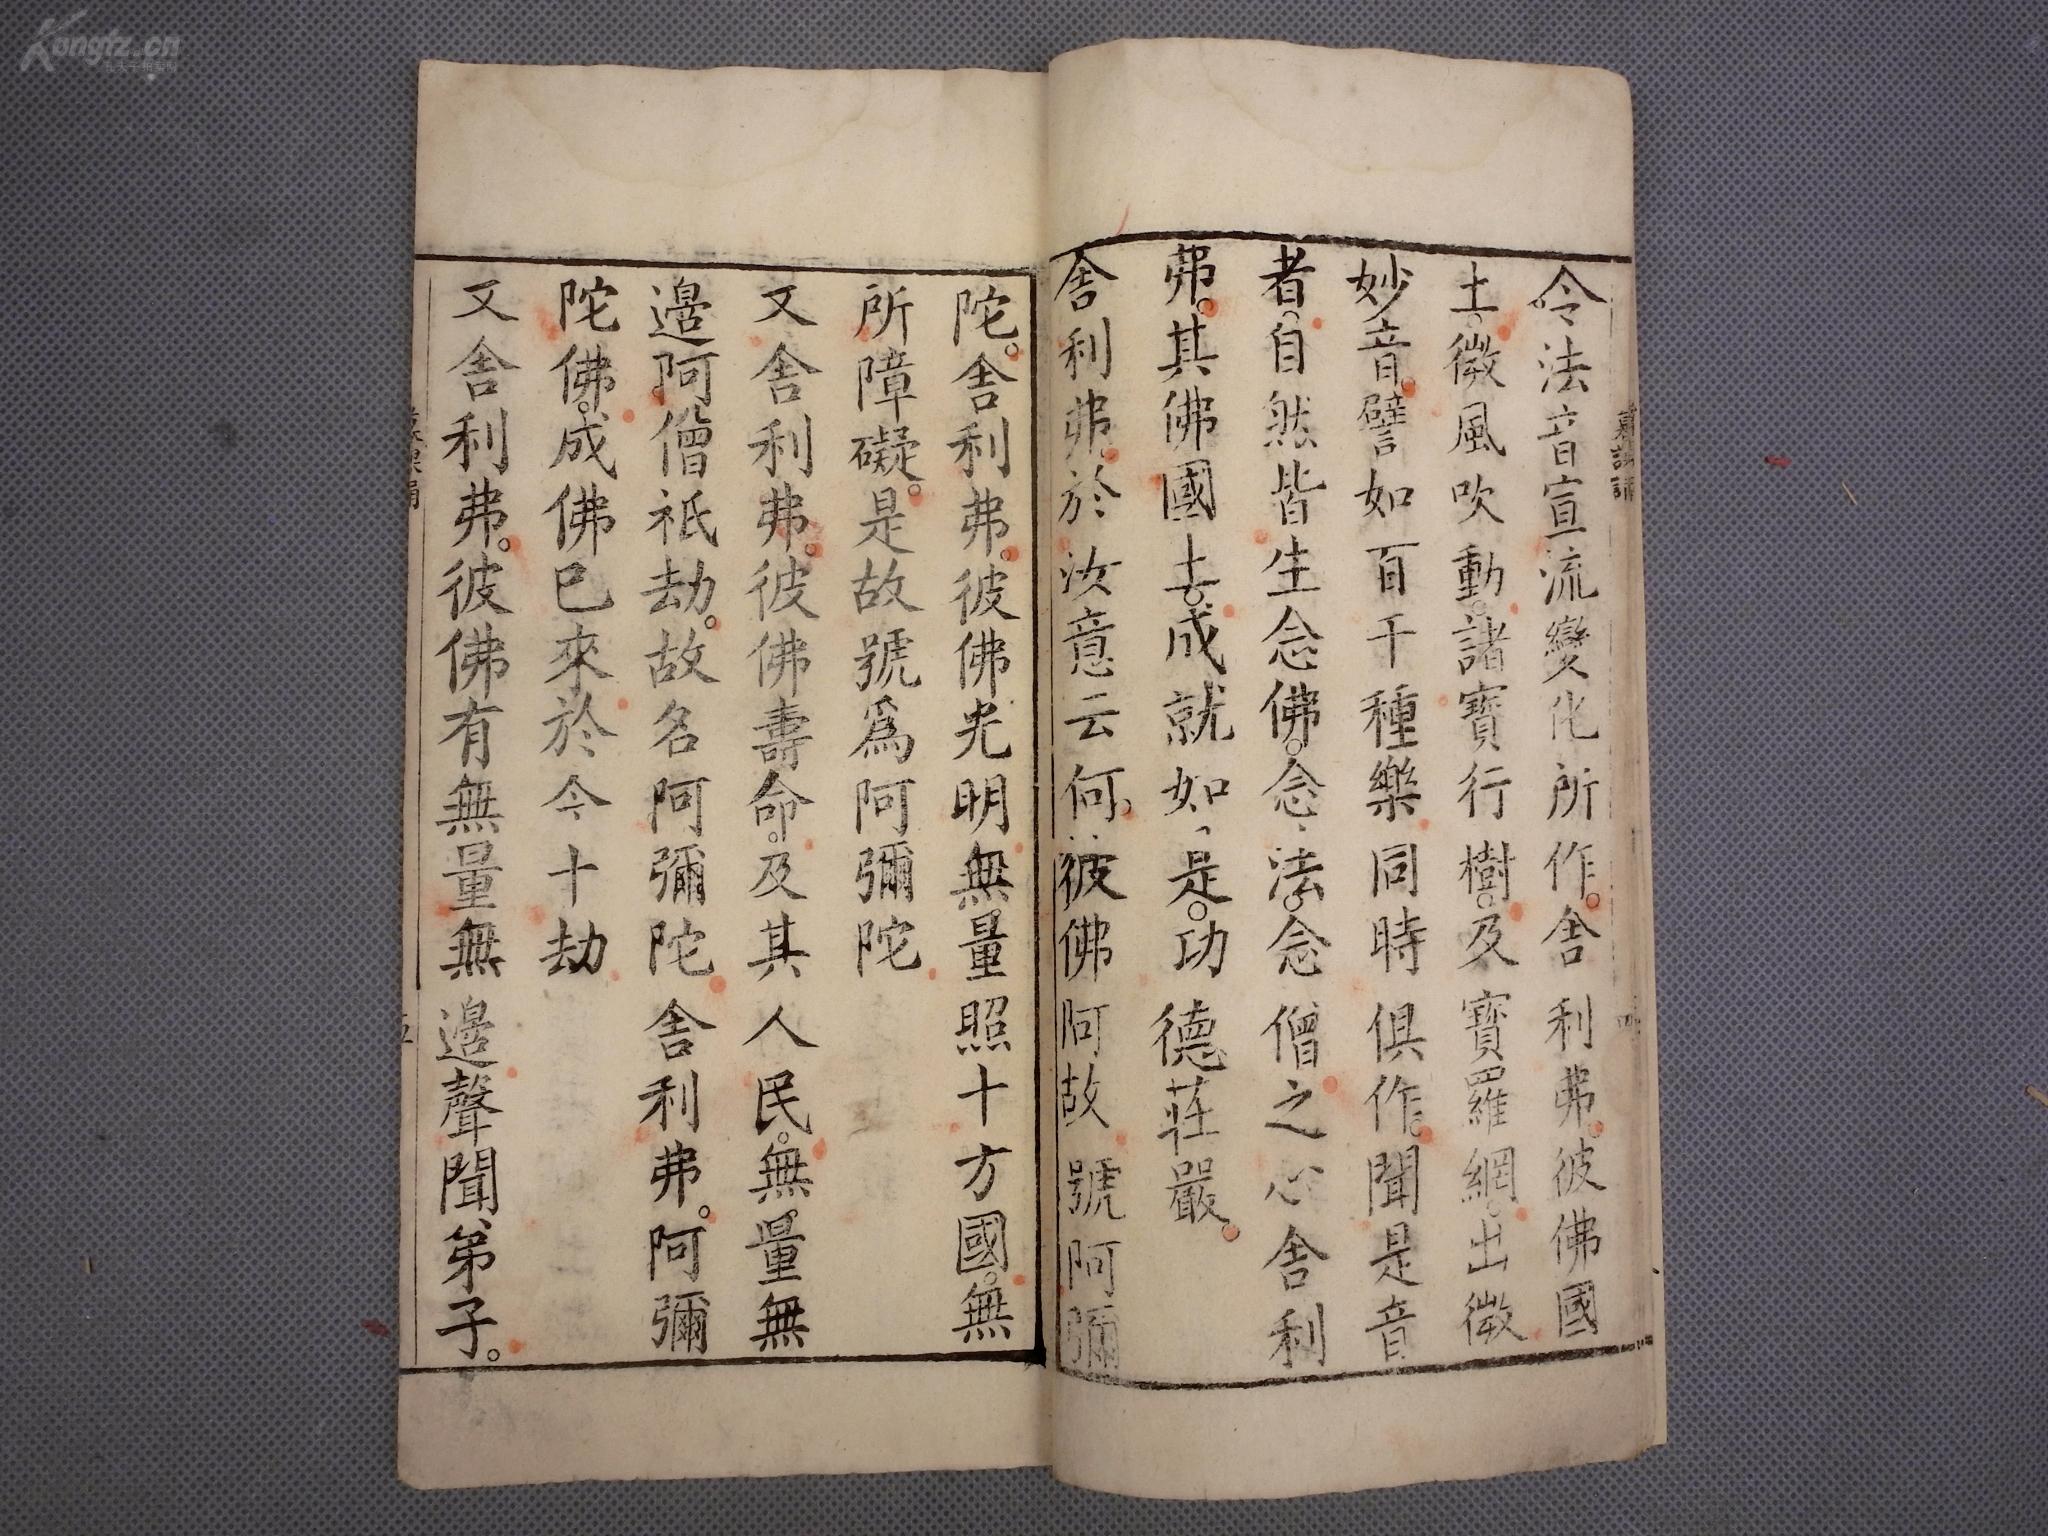 令法音宣流變化所作。舍利弗。彼佛國
土。微風吹動。諸寶行樹。及寶羅網。出微
妙音。譬如百千種樂同時俱作。聞是音
者。自然皆生念佛。念法。念僧之心舍利
弗。其佛國土。成就如是。功德莊嚴。
舍利弗。於汝意云何。彼佛何故號阿彌
陀。舍利弗。彼佛光明無量。照十方國。無
所障礙。是故號為阿彌陀
又舍利弗。彼佛壽命。及其人民。無量。無
邊阿僧祇劫。故名阿彌陀舍利弗。阿彌
陀佛。成佛已來於今十劫
又舍利弗。彼佛有無量無邊聲聞弟子。
四
五
Kongfz.cn